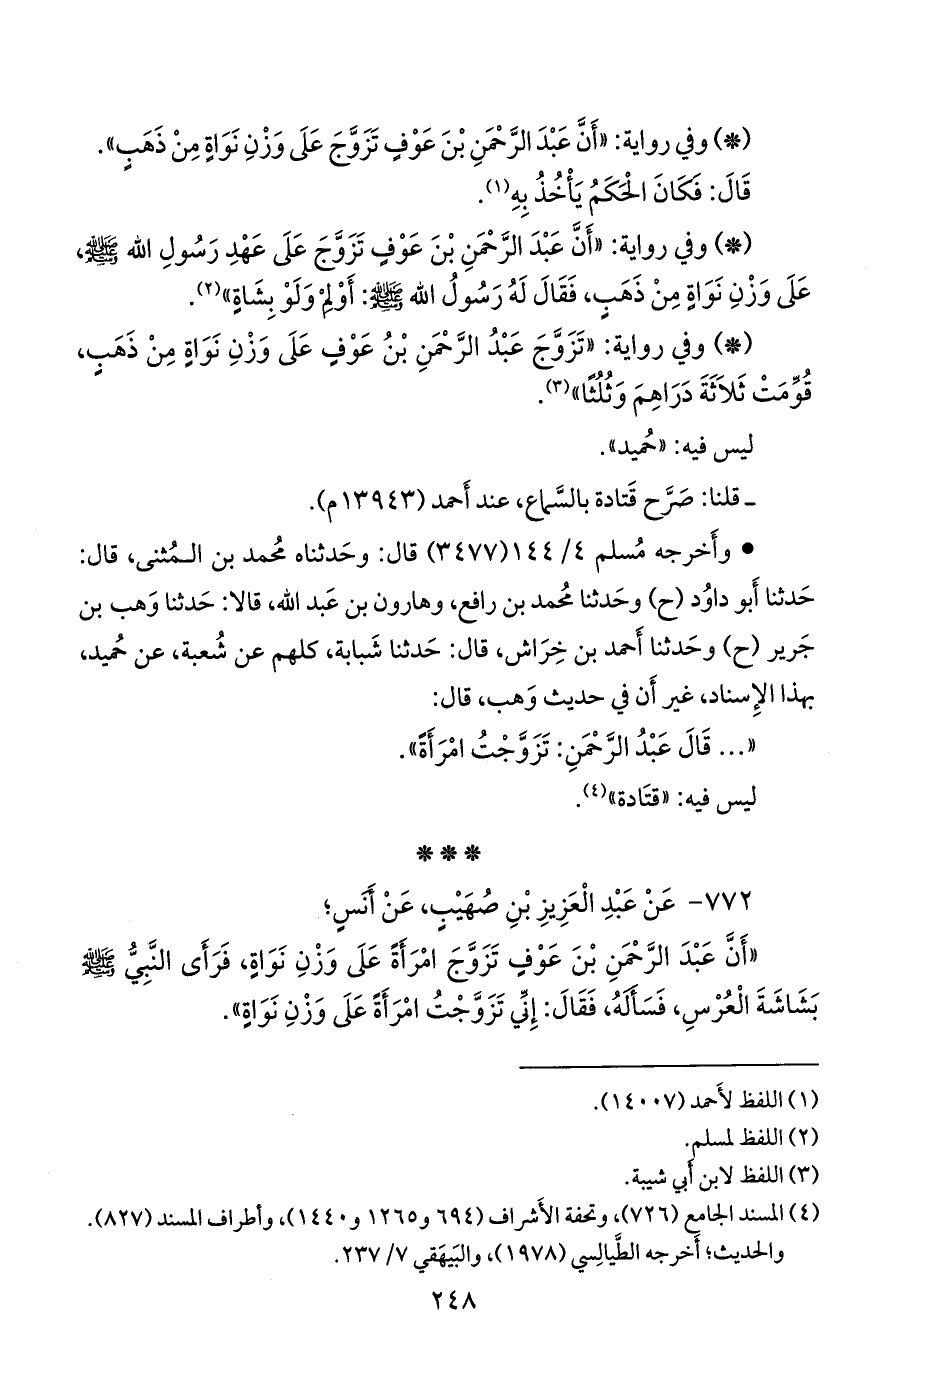 (*) وفي رواية: «أَنَّ عَبْدَ الرَّحْمَنِ بْنَ عَوْفٍ تَزَوَّجَ عَلَى وَزْنِ نَوَاةٍ مِنْ ذَهَبٍ».
قَالَ: فَكَانَ الْحَكَمُ يَأْخُذُ بِهِ(١).
(*) وفي رواية: «أَنَّ عَبْدَ الرَّحْمَنِ بْنَ عَوْفٍ تَزَوَّجَ عَلَى عَهْدِ رَسُولِ الله ﷺ،
عَلَى وَزْنِ نَوَاةٍ مِنْ ذَهَبٍ، فَقَالَ لَهُ رَسُولُ الله ﷺ: أَوْلِمْ وَلَوْ بِشَاةٍ»(٢).
(*) وفي رواية: «تَزَوَّجَ عَبْدُ الرَّحْمَنِ بْنُ عَوْفٍ عَلَى وَزْنِ نَوَاةٍ مِنْ ذَهَبٍ،
قُوِّمَتْ ثَلاَثَةَ دَرَاهِمَ وَثُلُثًا»(٣).
ليس فيه: «حُميد».
ـ قلنا: صَرَّح قَتادة بالسَّماع، عند أَحمد (١٣٩٤٣م).
• وأَخرجه مُسلم ٤/ ١٤٤(٣٤٧٧) قال: وحَدثناه مُحمد بن الـمُثنى، قال:
حَدثنا أَبو داوُد (ح) وحَدثنا مُحمد بن رافع، وهارون بن عَبد الله، قالا: حَدثنا وَهب بن
جَرير (ح) وحَدثنا أَحمد بن خِرَاش، قال: حَدثنا شَبابة، كلهم عن شُعبة، عن حُميد،
بهذا الإِسناد، غير أَن في حديث وَهب، قال:
«... قَالَ عَبْدُ الرَّحْمَنِ: تَزَوَّجْتُ امْرَأَةً».
ليس فيه: «قتَادة»(٤).
* * *
٧٧٢- عَنْ عَبْدِ الْعَزِيزِ بْنِ صُهَيْبٍ، عَنْ أَنَسٍ؛
«أَنَّ عَبْدَ الرَّحْمَنِ بْنَ عَوْفٍ تَزَوَّجَ امْرَأَةً عَلَى وَزْنِ نَوَاةٍ، فَرَأَى النَّبِيُّ ﷺ
بَشَاشَةَ الْعُرْسِ، فَسَأَلَهُ، فَقَالَ: إِنِّي تَزَوَّجْتُ امْرَأَةً عَلَى وَزْنِ نَوَاةٍ».
(١) اللفظ لأَحمد (١٤٠٠٧).
(٢) اللفظ لمسلم.
(٣) اللفظ لابن أَبي شيبة.
(٤) المسند الجامع (٧٢٦)، وتحفة الأَشراف (٦٩٤ و١٢٦٥ و١٤٤٠)، وأطراف المسند (٨٢٧).
والحديث؛ أَخرجه الطَّيالِسي (١٩٧٨)، والبَيهَقي ٧/ ٢٣٧.
٢٤٨